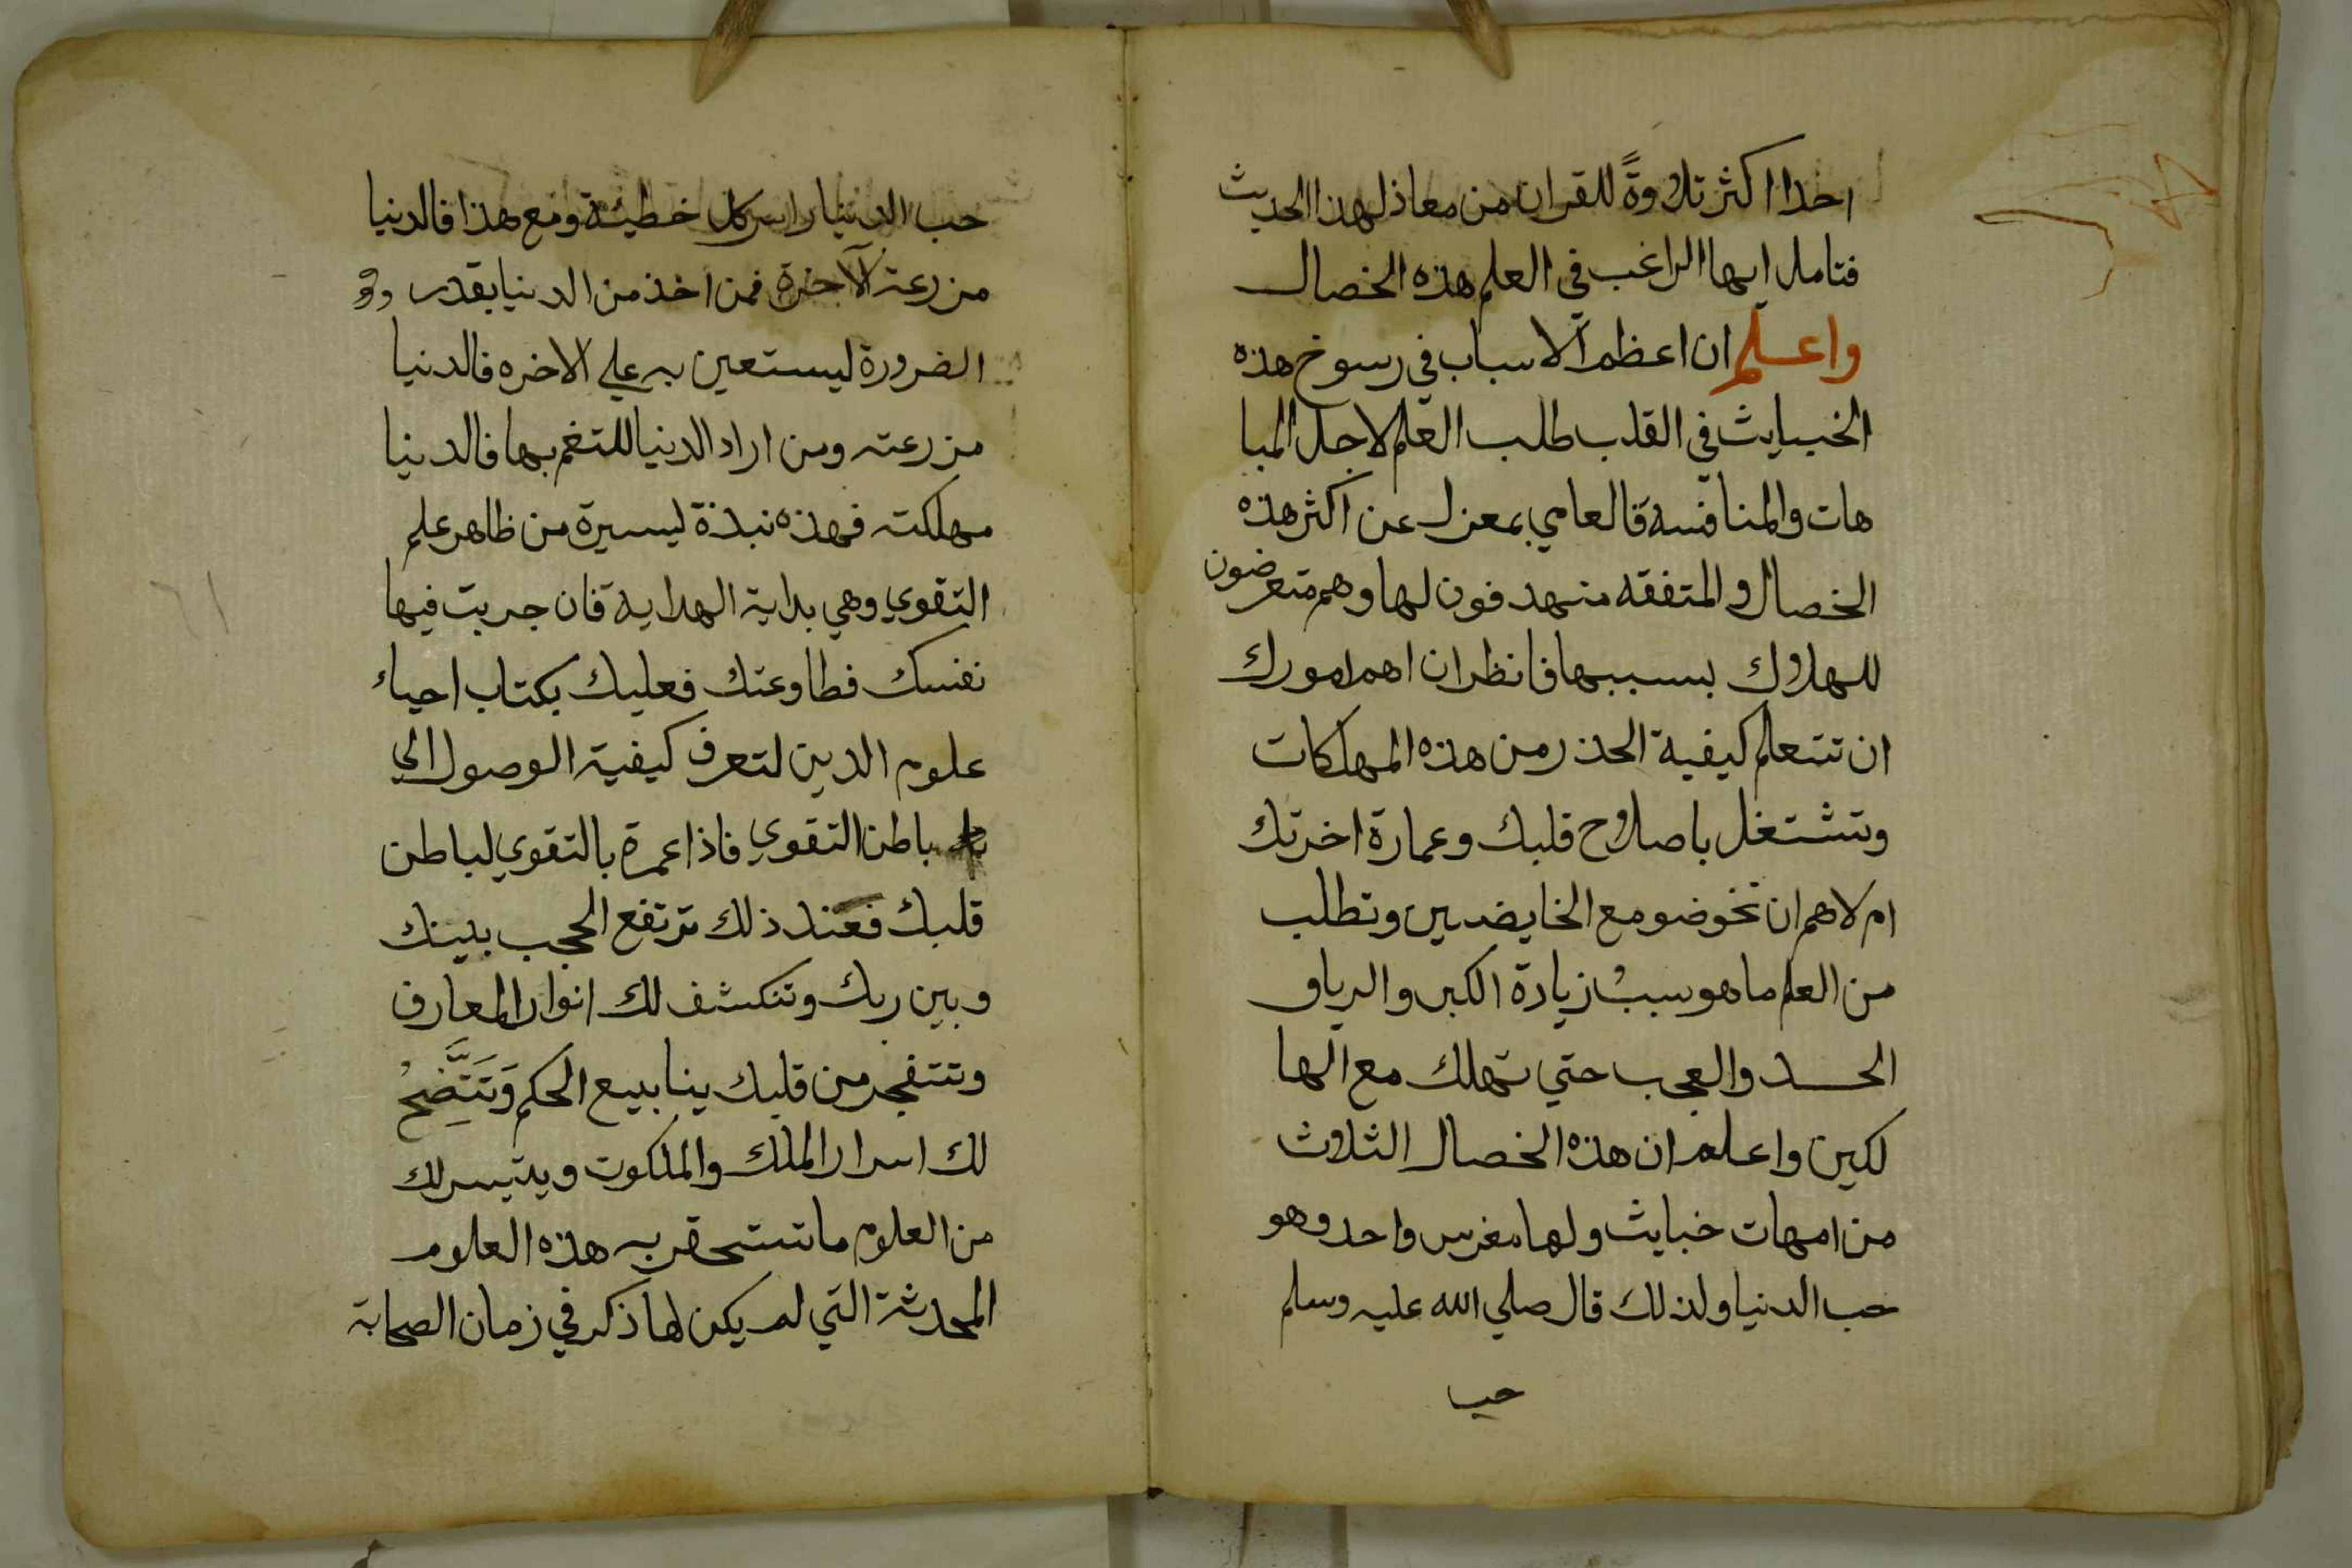 احدا اكثر تلاوةً للقران من معاذ لهذا الحديث
فتامل ايها الراغب في العلم هذه الخصال
واعلم ان اعظم الاسباب في رسوخ هذه
الخبايث في القلب طلب العلم لاجل المبا
هات والمنافسة فالعامي بمعزل عن اكثر هذه
الخصال والمتفقه متهدفون لها وهم متعرضون
للهلاك بسببها فانظر ان اهم امورك
ان تتعلم كيفية الحذر من هذه المهلكات
وتشتغل باصلاح قلبك وعمارة اخرتك
ام لاهم ان تخوضو مع الخايضين وتطلب
من العلم ما هو سببُ زيادة الكبر والريا و
الحسد والعجب حتي تهلك مع الها
لكين واعلم ان هذه الخصال الثلاث
من امهات خبايث ولها مغرس واحد وهو
حب الدنيا ولذلك قال صلي الله عليه وسلم
حب
حب الدنيا راس كل خطيئة ومع هذا فالدنيا
مزرعة الآخرة فمن اخذ من الدنيا بقدر
الضرورة ليستعين به علي الاخره فالدنيا
مزرعته ومن اراد الدنيا للتغم بها فالدنيا
مهلكته فهذه نبذة ليسيرة من ظاهر علم
التقوي وهي بداية الهداية فان جربت فيها
نفسك فطاوعتك فعليك بكتاب احياء
علوم الدين لتعرف كيفية الوصول الي
باطن التقوي فاذا عمرة بالتقوي لباطن
قلبك فعند ذلك ترتفع الحجب بينك
وبين ربك وتنكشف لك انوار المعارف
وتتفجر من قلبك ينابيع الحكم وَتَتَّضِحُ
لك اسرار الملك والملكوت ويتيسر لك
من العلوم ما تستحقر به هذه العلوم
المحدثة التي لم يكن لها ذكر في زمان الصحابة
٦١